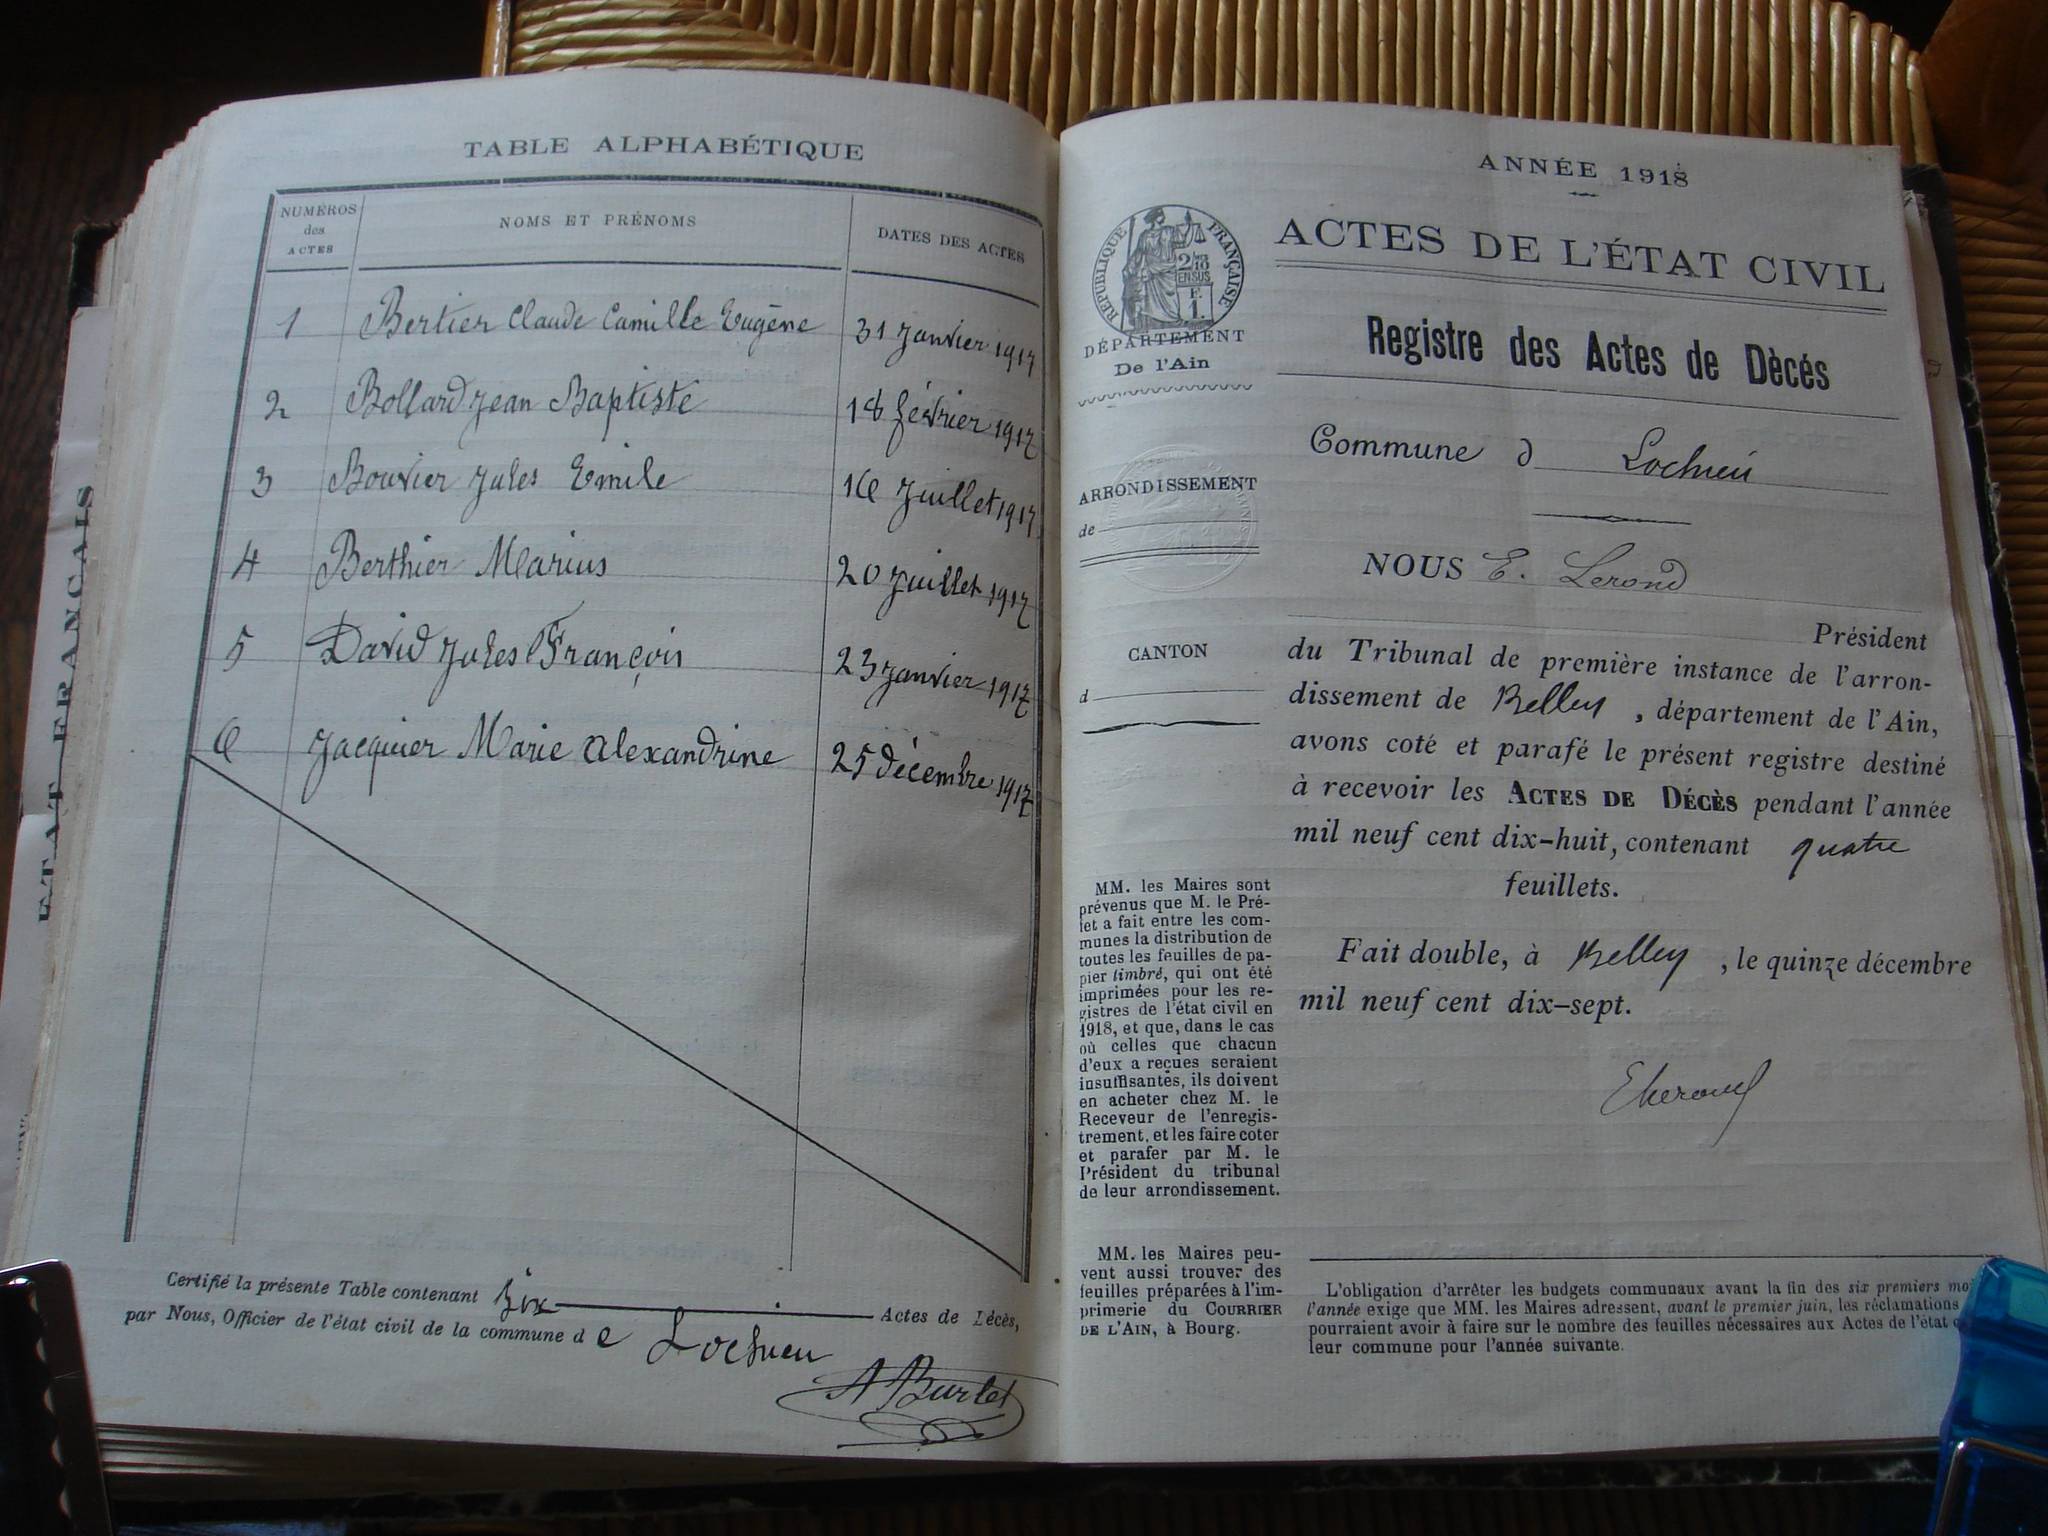 ETAT FRANÇAIS
TABLE ALPHABÉTIQUE
NUMÉROS des ACTES
NOMS ET PRÉNOMS
DATES DES ACTES
1 Bertier Claude Camille Eugène 31 Janvier 1917
2 Bollard Jean Baptiste 18 février 1917
3 Bouvier Jules Emile 16 Juillet 1917
4 Berthier Marius 20 Juillet 1917
5 David Jules François 23 Janvier 1917
6 Jacquier Marie Alexandrine 25 décembre 1917
Certifié la présente Table contenant Six Actes de Décès,
par Nous, Officier de l'état civil de la commune d e Lochieu
A Burlet
ANNÉE 1918
ACTES DE L'ÉTAT CIVIL
Registre des Actes de Dècés
RÉPUBLIQUE FRANÇAISE
2/10
EN SUS
F.
1.
DÉPARTEMENT
De l'Ain
Commune d Lochieu
ARRONDISSEMENT
de
NOUS E. Lerond
Président
CANTON
d
du Tribunal de première instance de l'arron-
dissement de Belley, département de l'Ain,
avons coté et parafé le présent registre destiné
à recevoir les ACTES DE DÉCÈS pendant l'année
mil neuf cent dix-huit, contenant quatre
feuillets.
Fait double, à Belley, le quinze décembre
mil neuf cent dix-sept.
MM. les Maires sont
prévenus que M. le Pré-
fet a fait entre les com-
munes la distribution de
toutes les feuilles de pa-
pier timbré, qui ont été
imprimées pour les re-
gistres de l'état civil en
1918, et que, dans le cas
où celles que chacun
d'eux a reçues seraient
insuffisantes, ils doivent
en acheter chez M. le
Receveur de l'enregis-
trement, et les faire coter
et parafer par M. le
Président du tribunal
de leur arrondissement.
MM. les Maires peu-
vent aussi trouver des
feuilles préparées à l'im-
primerie du COURRIER
DE L'AIN, à Bourg.
L'obligation d'arrêter les budgets communaux avant la fin des six premiers moi
l'année exige que MM. les Maires adressent, avant le premier juin, les réclamations
pourraient avoir à faire sur le nombre des feuilles nécessaires aux Actes de l'état
leur commune pour l'année suivante.